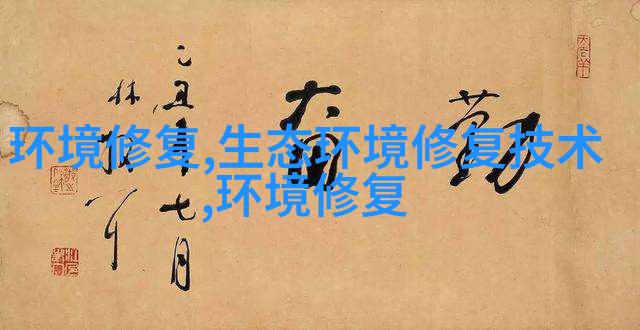 环境修复,生态环境修复技术
,环境修复
勤奋
乙丑年七月